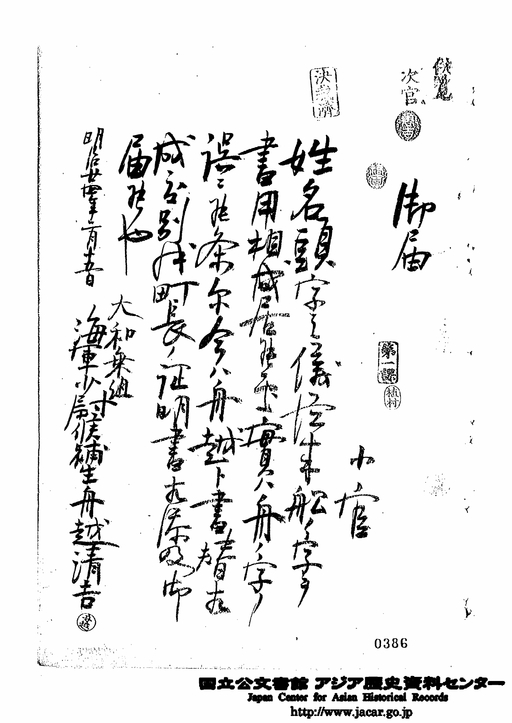 次官
決裁済
御届
第一課
植村
小官
姓名頭字之儀従来船ノ字ヲ
書用相成居候処實ハ舟ノ字ノ
誤ニ候条尓今ハ舟越ト書替
成
別
町長ノ証明書
御
届候也
明治廿四年
大和乗組
海軍少尉候補生舟越清吉
0386
国立公文書館 アジア歴史資料センター
Japan Center for Asian Historical Records
http://www.jacar.go.jp